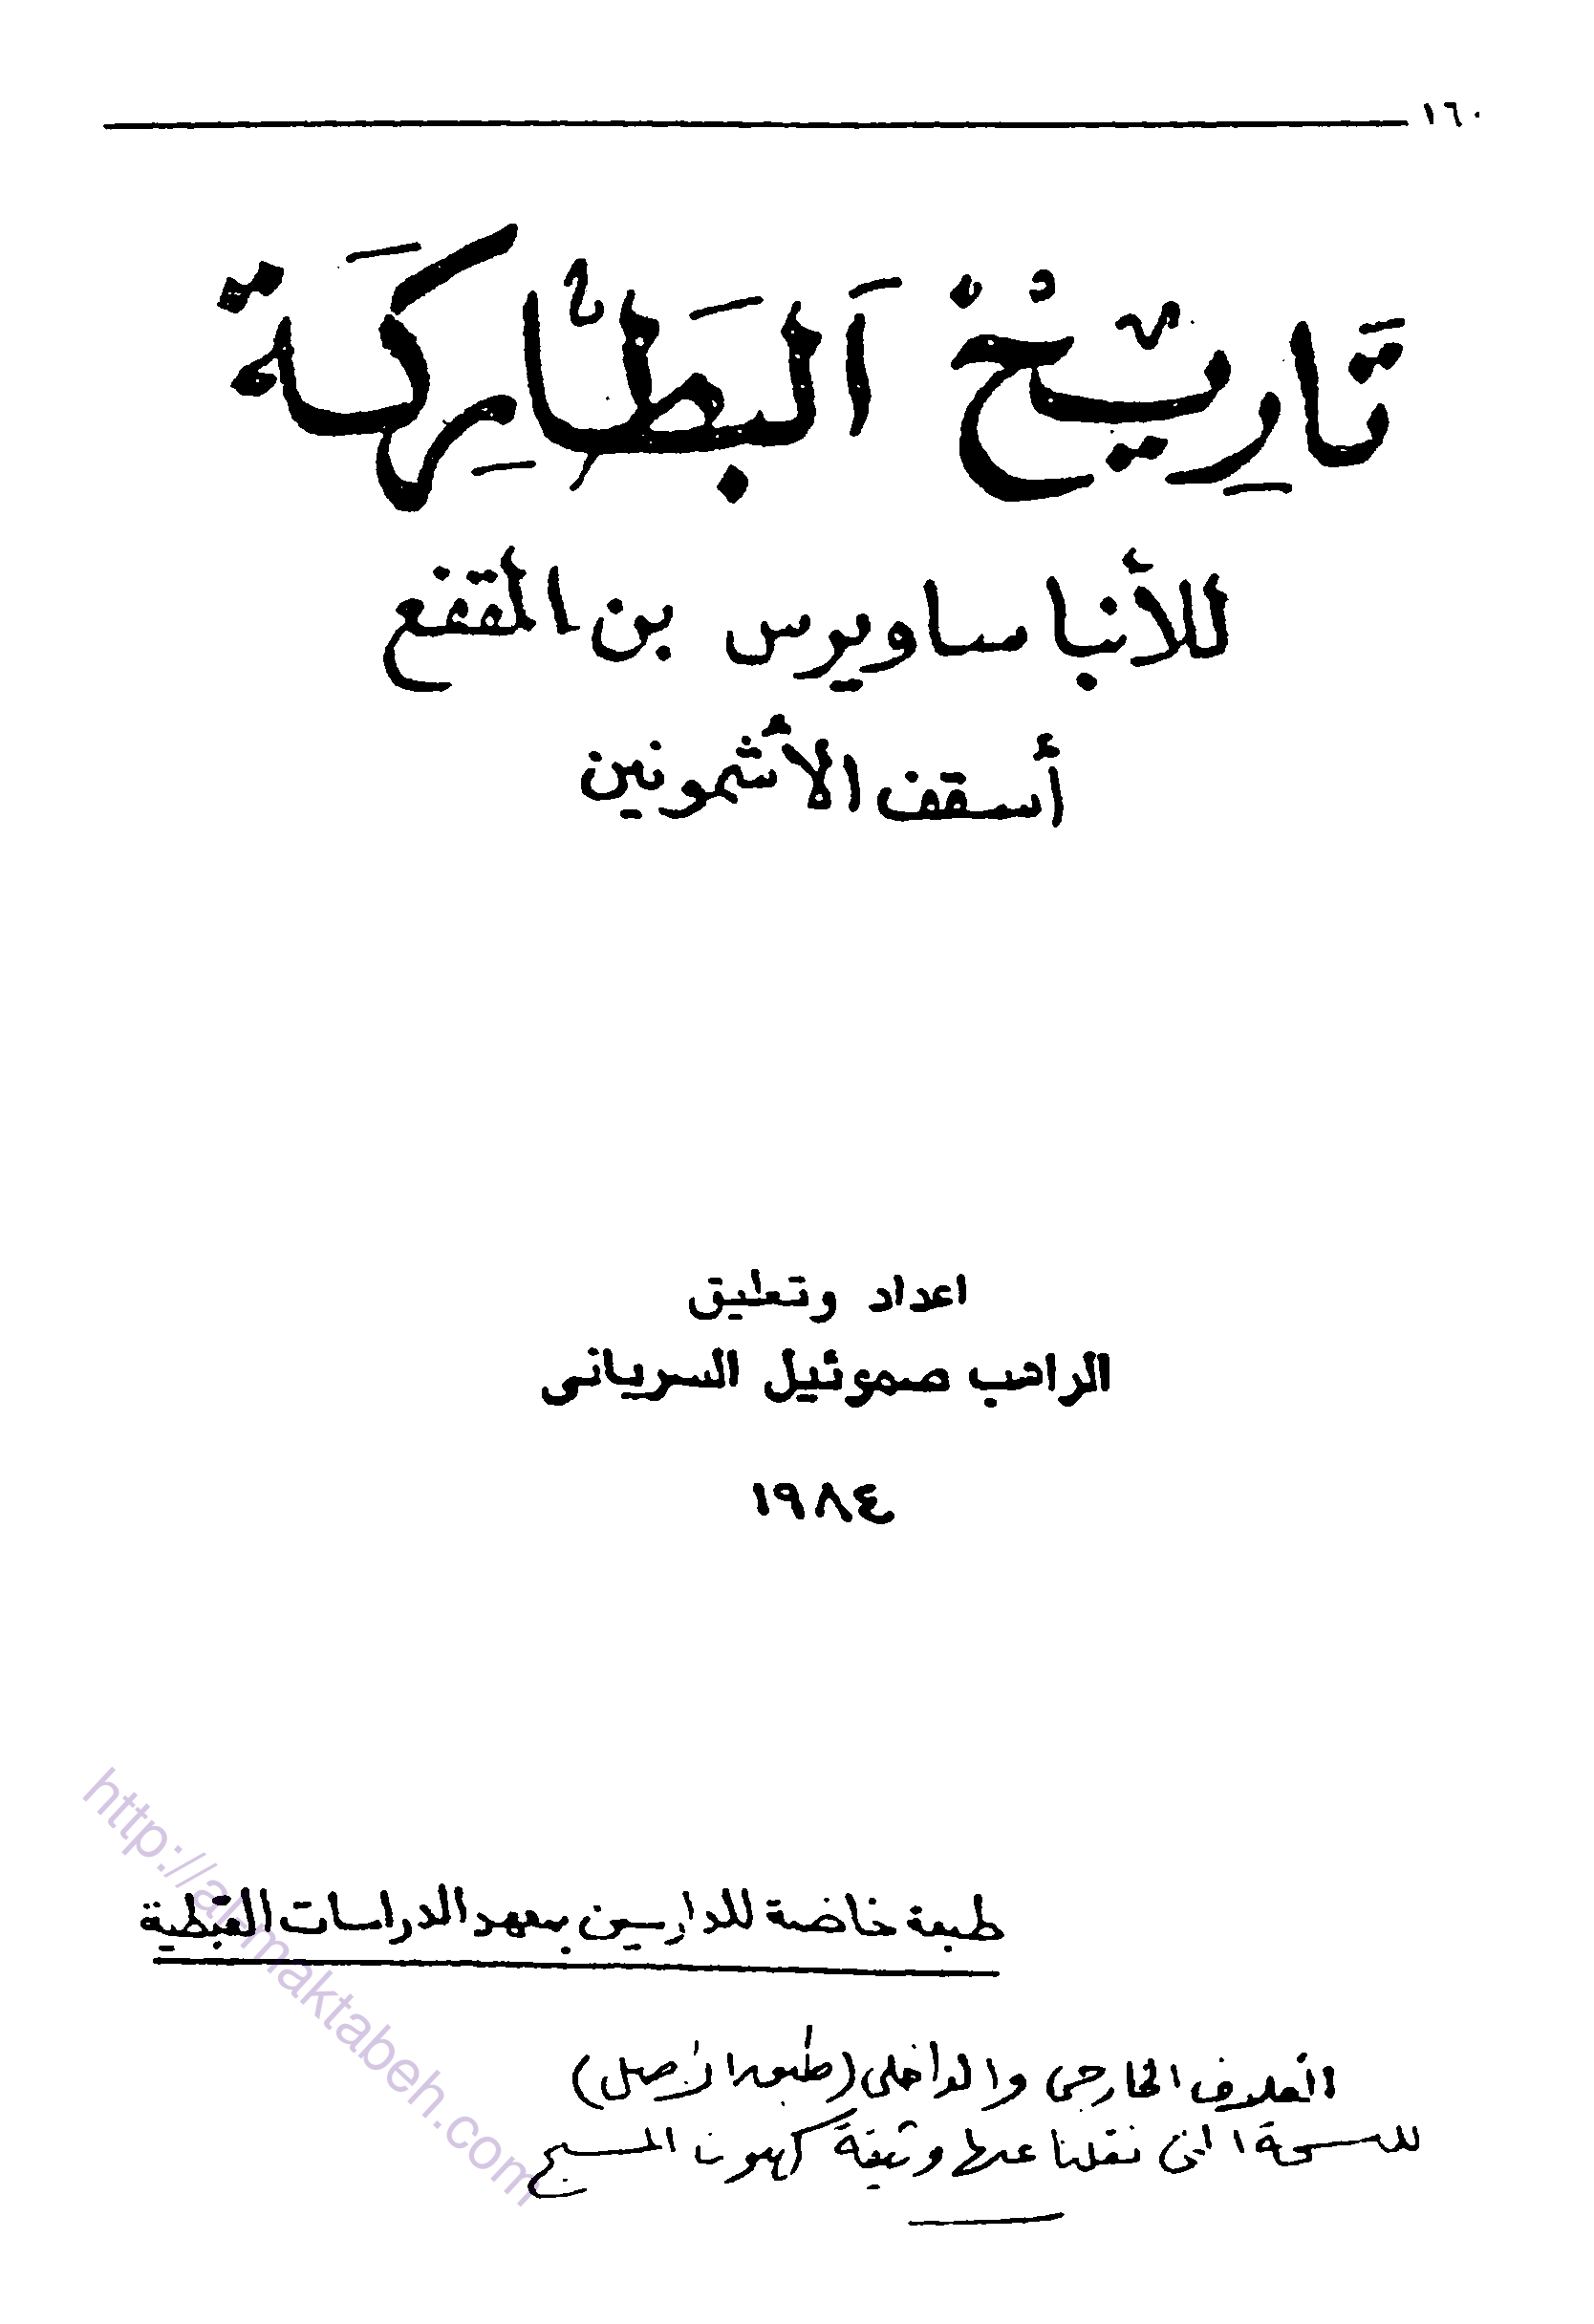 ١٦٠
تَاريخُ اَلبَطَاركَة
للأنبا ساويرس بن المقفع
أسقف الأشمونين
اعداد وتعليق
الراهب صموئيل السريانى
١٩٨٤
طبعة خاصة للدارسين بمعهد الدراسات القبطية
الغلاف الخارجى والداخلى (طبق الأصل)
للنسخة التى نقلنا عنها وثيقة كهنوت المسيح
http://al-maktabeh.com